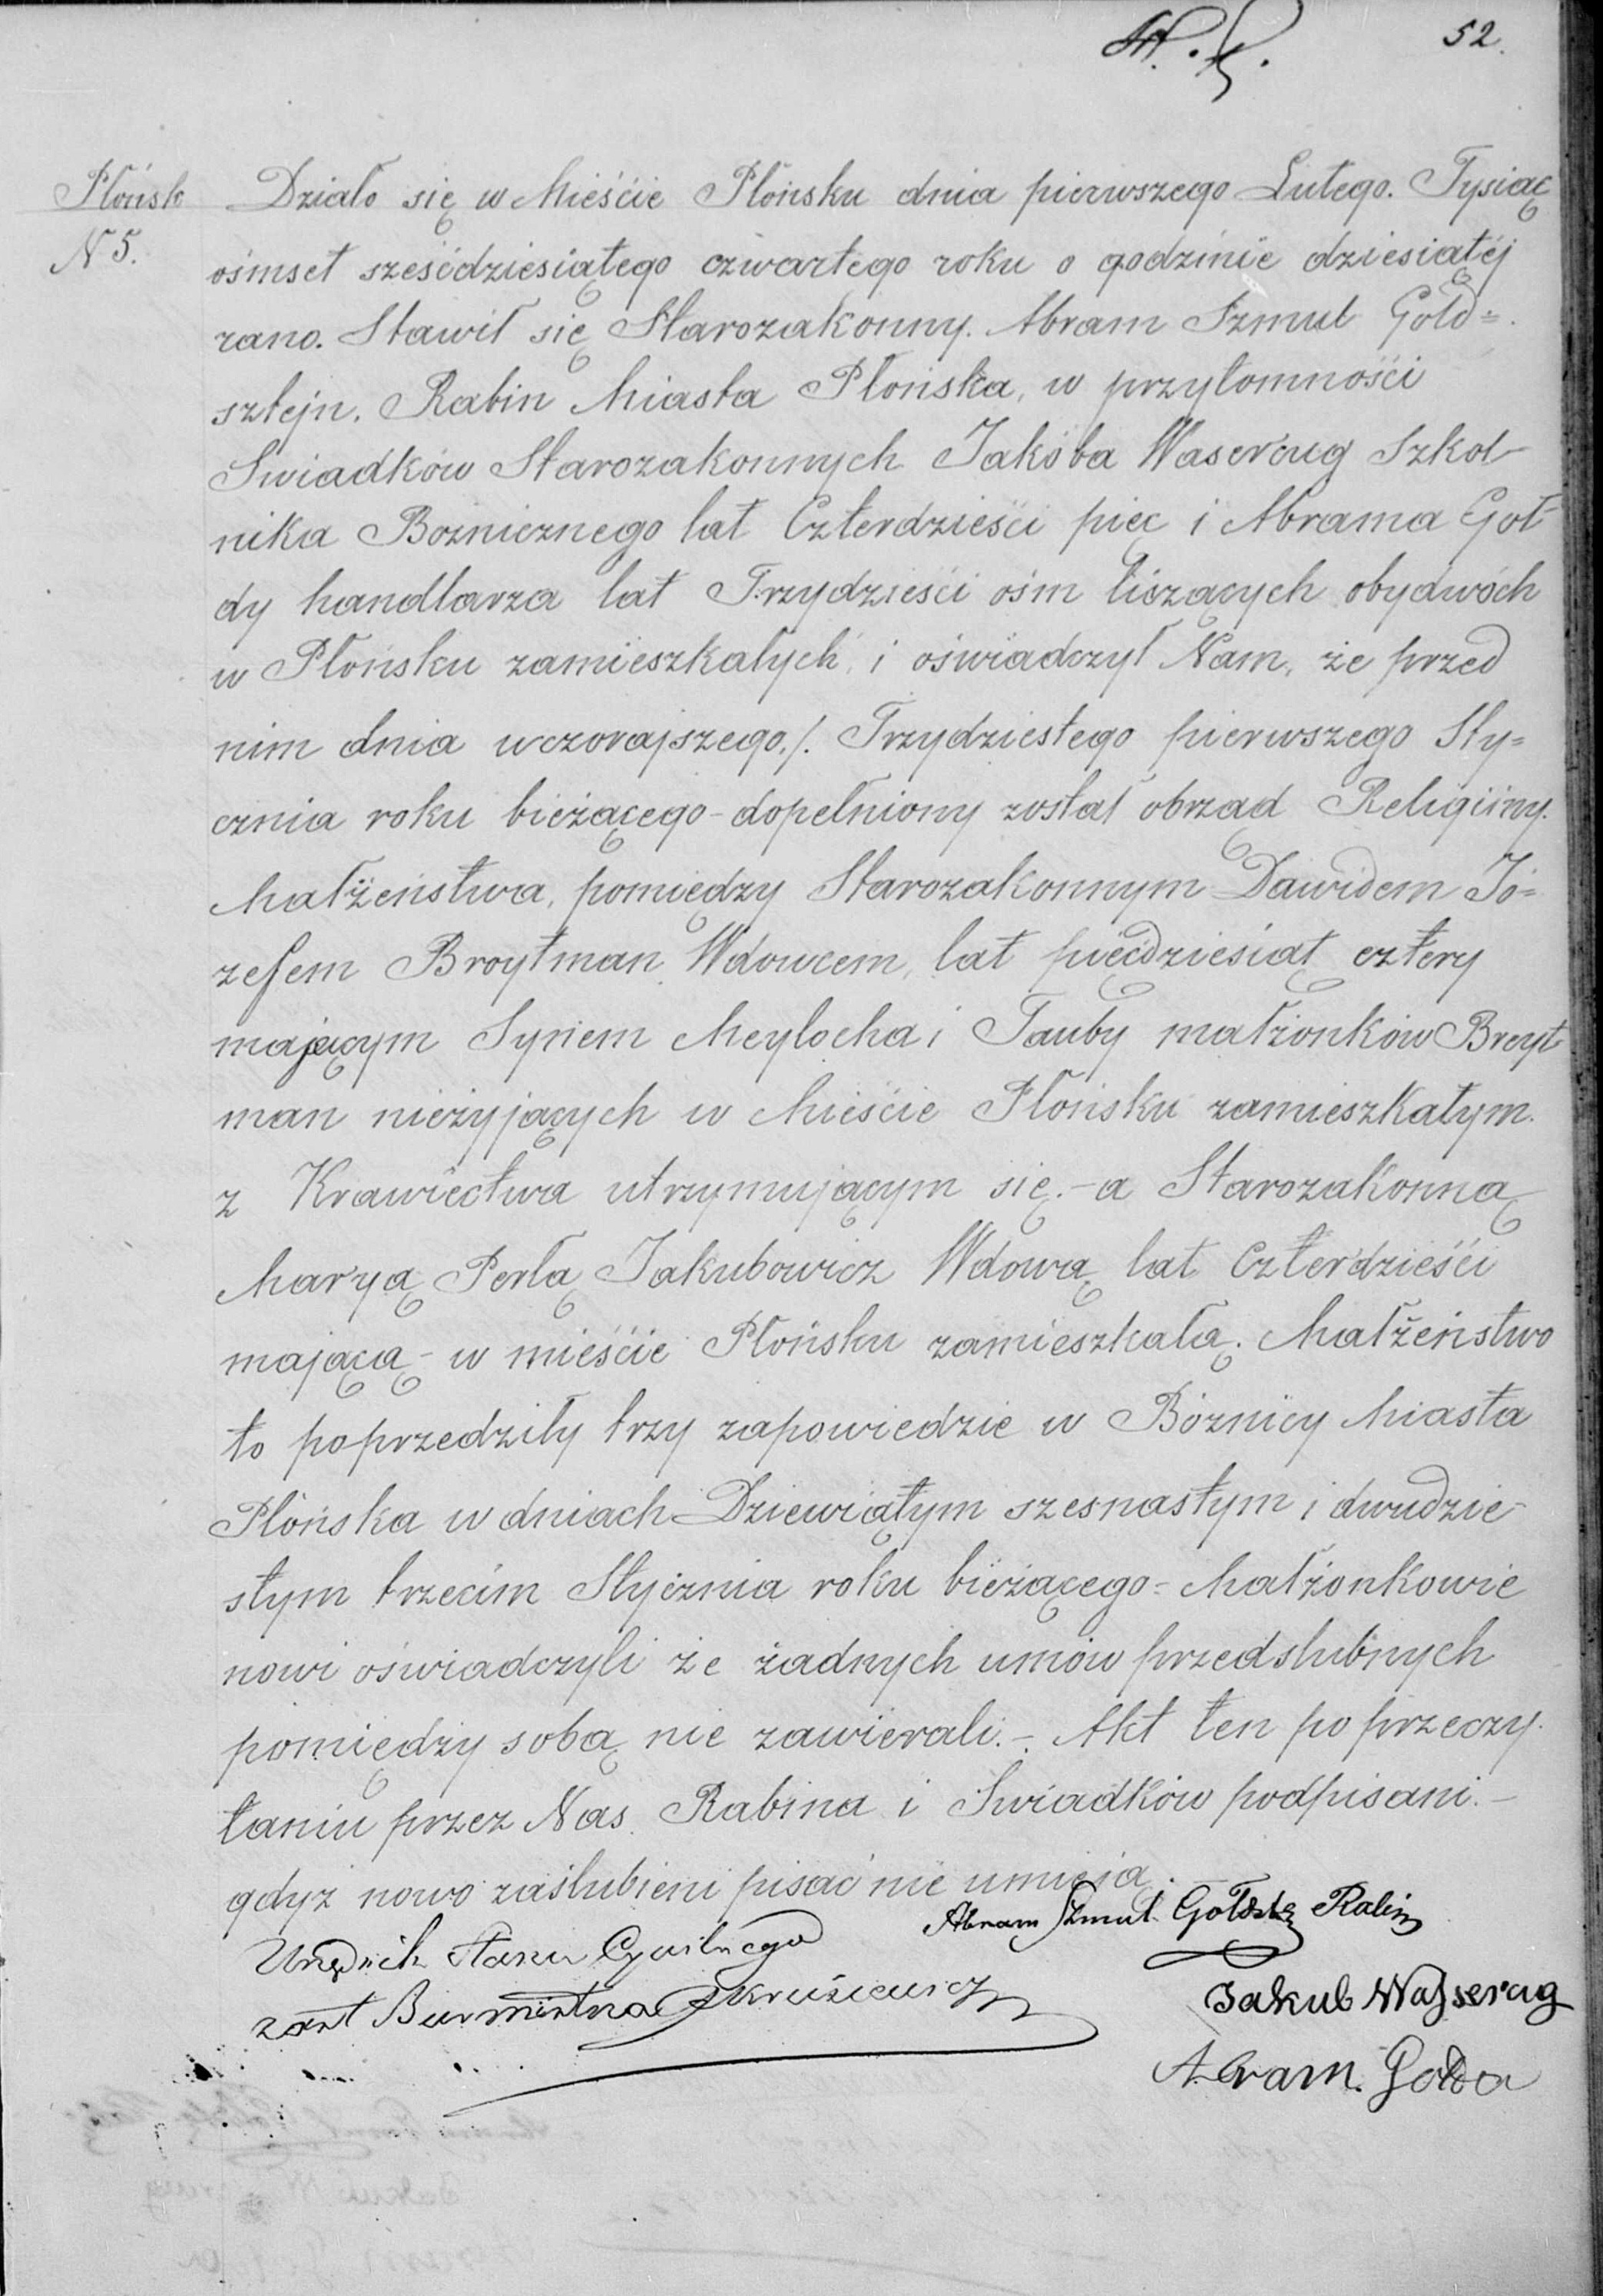 52.
Płońsk
N 5.
Działo się w Mieście Płońsku dnia pierwszego Lutego. Tysiąc
ośmset sześćdziesiątego czwartego roku o godzinie dziesiątéj
rano. Stawił się Starozakonny. Abram Szmul Gold=
sztejn. Rabin Miasta Płońska, w przytomności
Swiadków Starozakonnych Jakóba Wasercug Szkol-
nika Bożnicznego lat Czterdzieści pięc i Abrama Goł-
dy handlarza lat Trzydzieści ośm liczących obydwóch
w Płońsku zamieszkałych, i oświadczył Nam, że przed
nim dnia wczorajszego./. Trzydziestego pierwszego Sty=
cznia roku bieżącego - dopełniony został obrząd Religiiny.
Małżeństwa, pomiędzy Starozakonnym Dawidem Jó=
zefem Broytman Wdowcem, lat pięćdziesiąt cztery
mającym Synem Meylocha i Tauby małżonków Breyt
man nieżyjących w Mieście Płońsku zamieszkałym.
z Krawiectwa utrzymującym się. - a Starozakonną
Maryą Perlą Jakubowicz Wdową lat Czterdzieści
mającą - w mieście Płońsku zamieszkałą. Małżeństwo
to poprzedziły trzy zapowiedzie w Bóżnicy Miasta
Płońska w dniach Dziewiątym szesnastym i dwudzie-
stym trzecim Stycznia roku bieżącego = Małżonkowie
nowi oświadczyli że żadnych umów przedslubnych
pomiędzy sobą nie zawierali. -. Akt ten po przeczy-
taniu przez Nas Rabina i Swiadków podpisani. -
gdyż nowo zaślubieni pisać nie umieją.
Abram Szmul Goldszt Rabin
Urzędnik Stanu Cywilnego
Jakub Wasserug
zast Burmistrza
Abram. Golda